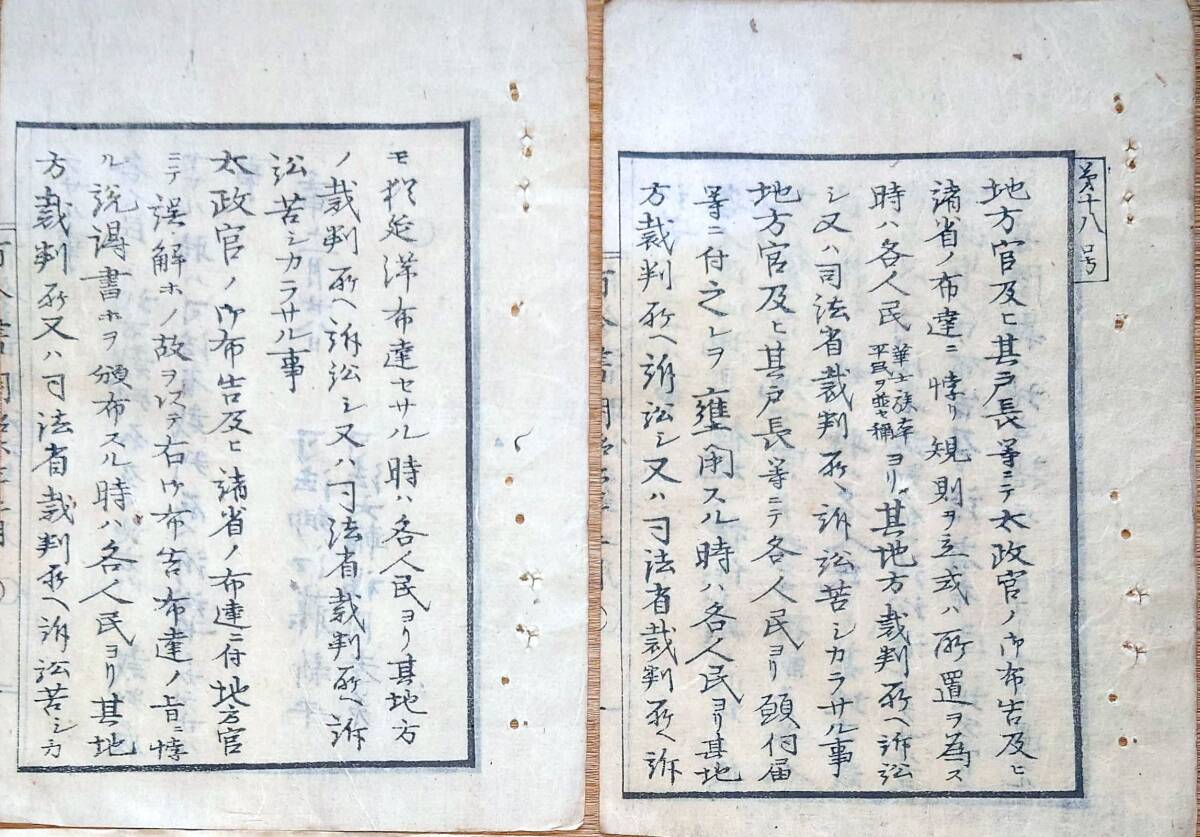 第十八号
地方官及ヒ其戸長等ニテ太政官ノ御布告及ヒ
諸省ノ布達ニ悖リ規則ヲ立或ハ所置ヲ為ス
時ハ各人民
華士族卒
平民ヲ並セ稱
ヨリ其地方裁判所ヘ訴訟
シ又ハ司法省裁判所訴訟苦シカラサル事
地方官及ヒ其戸長等ニテ各人民ヨリ願伺届
等ニ付之レヲ壅閉スル時ハ各人民ヨリ其地
方裁判所ヘ訴訟シ又ハ司法省裁判所ヘ訴
モ猶延滞布達セサル時ハ各人民ヨリ其地方
ノ裁判所ヘ訴訟シ又ハ司法省裁判所ヘ訴
訟苦シカラサル事
太政官ノ御布告及ヒ諸省ノ布達ニ付地方官
ニテ誤解ホノ故ヲ以テ右御布告布達ノ旨ニ悖
ル説得書ホヲ頒布スル時ハ各人民ヨリ其地
方裁判所又ハ司法省裁判所ヘ訴訟苦シカ